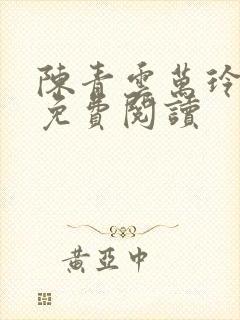 陳青雲萬玲
免費閱讀
黃亞中